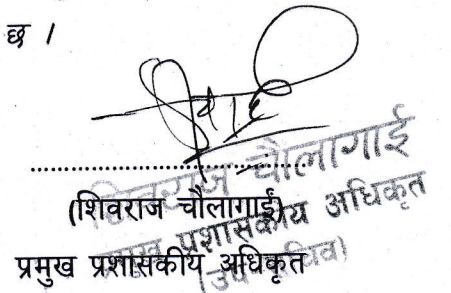 छ ।
(शिवराज चौलागाईं)
प्रमुख प्रशासकीय अधिकृत
शिवराज चौलागाई
प्रमुख प्रशासकीय अधिकृत
(उप सचिव)